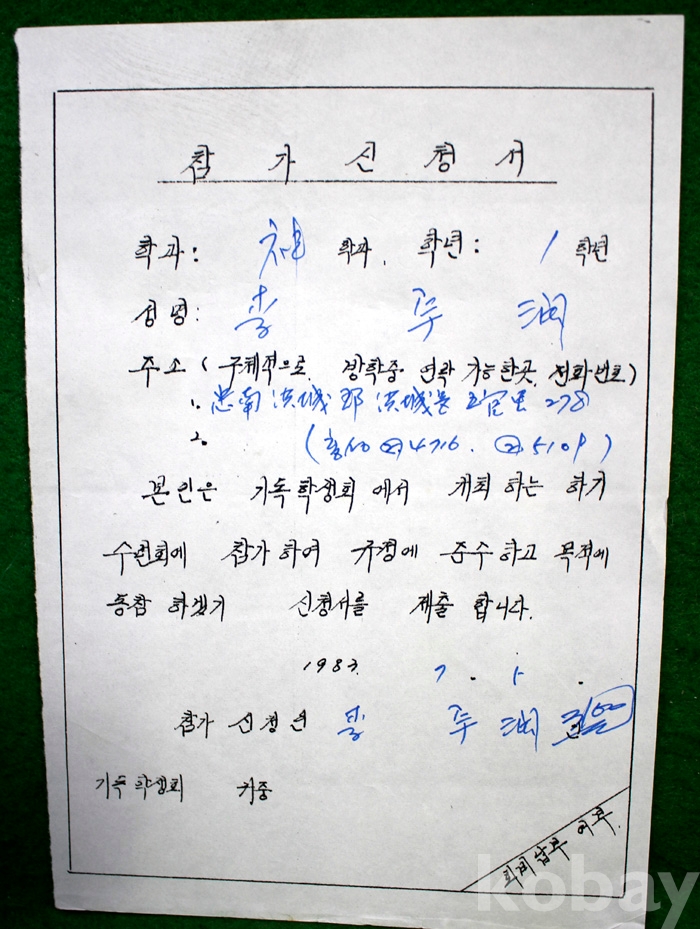 참 가 신 청 서
학과: 神 학과. 학년: 1 학년
성명: 李 周 润
주소 (구체적으로. 방학중 연락 가능한곳. 전화번호)
1. 忠南 洪城郡 洪城邑 五官里 278
2. (홍성 ② 4716. ② 5109)
본인은 기독학생회에서 개최 하는 하기
수련회에 참가 하여 규정에 준수 하고 목적에
동참 하겠기 신청서를 제출 합니다.
1983. 7. 5.
참가 신청인 李 周 润
기독 학생회 귀중
회비 납부 여부.
kobay